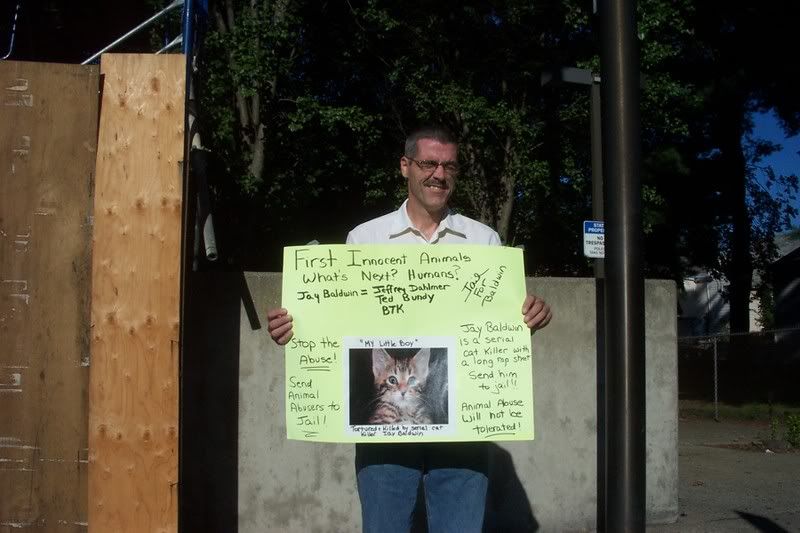 First Innocent Animals
What's Next? Humans?
Jay Baldwin = Jeffrey Dahlmer
Ted Bundy
BTK
Jail
For
Baldwin
Stop the
Abuse!
Send
Animal
Abusers to
Jail!
"MY Little Boy"
Tortured & Killed by serial cat
Killer Jay Baldwin
Jay Baldwin
is a serial
cat Killer with
a long rap sheet
Send him
to jail!!
Animal Abuse
Will not be
tolerated!
STATE
PROPERTY
NO
TRESPASSING